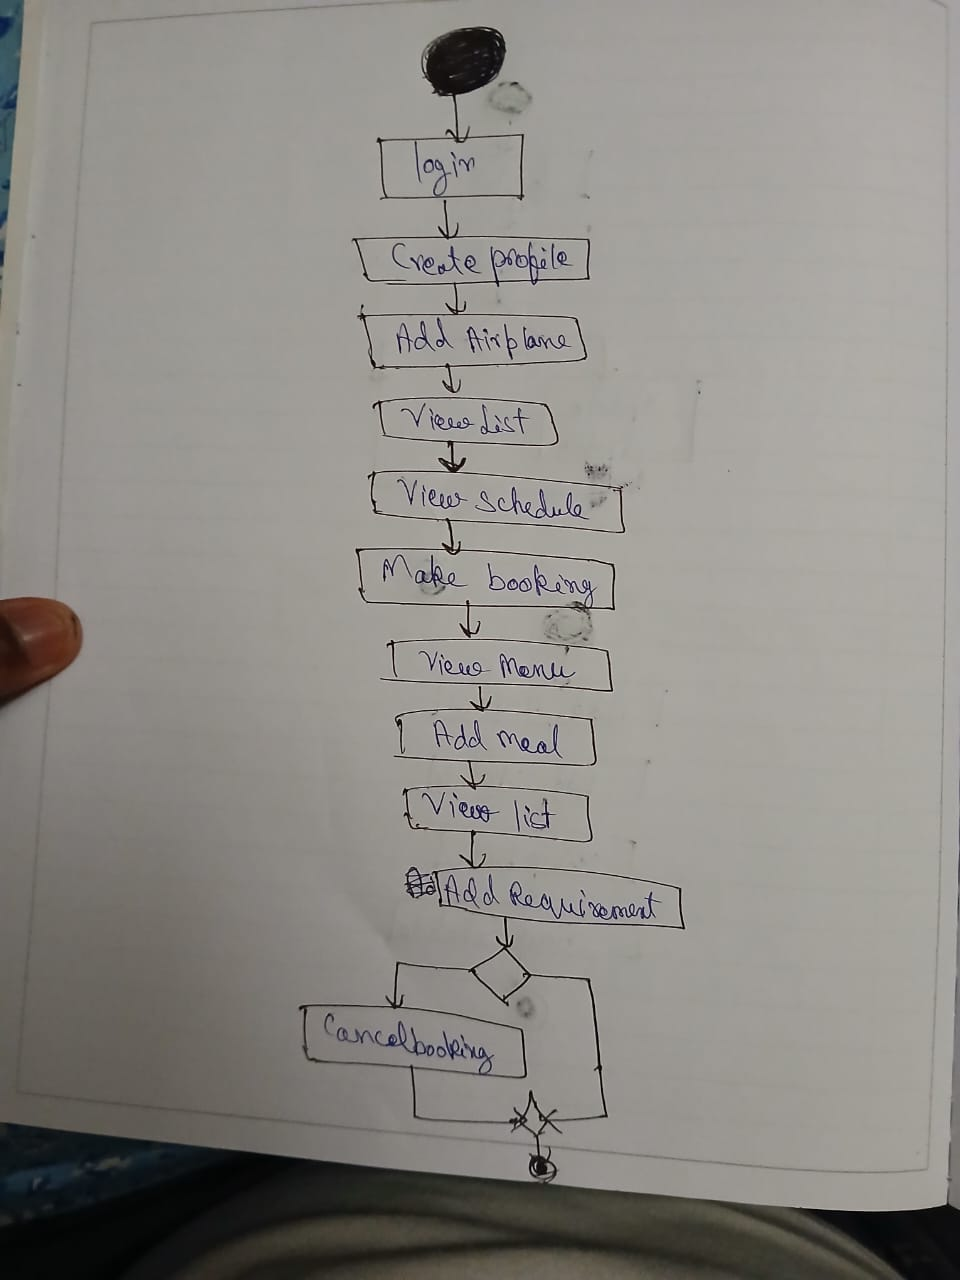 login
Create profile
Add Airplane
View List
View Schedule
Make booking
View Menu
Add meal
View list
Add Requirement
Cancelbooking